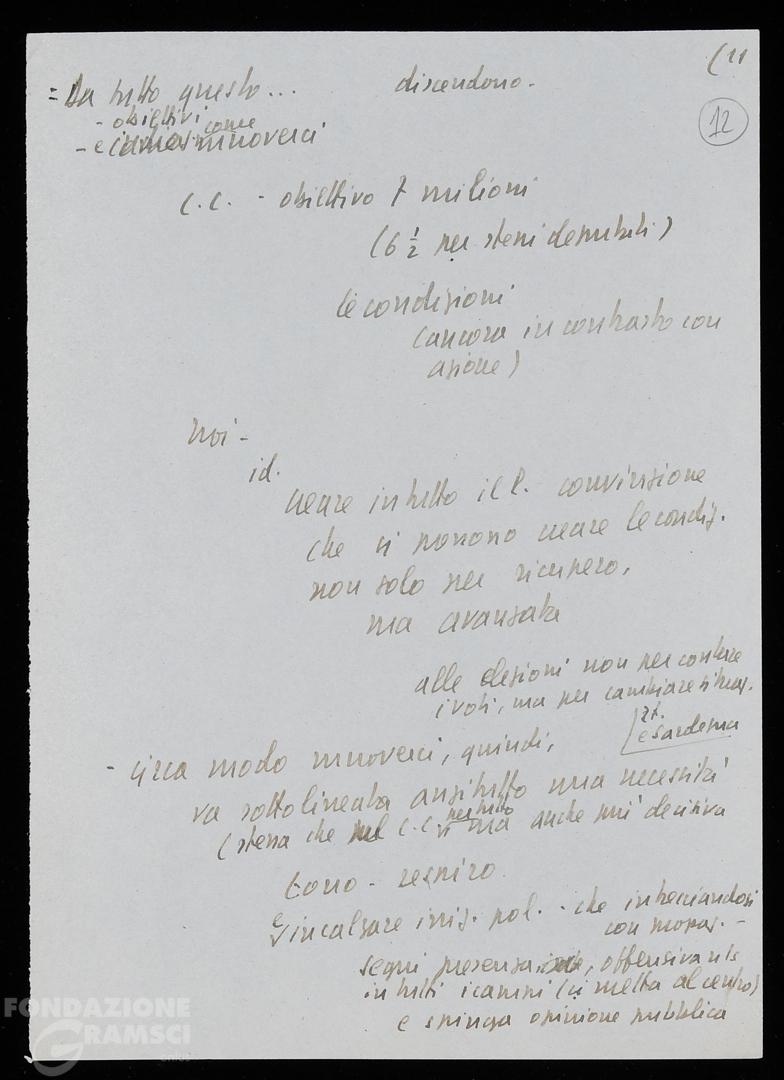 (11
12
= Da tutto questo... discendono -
- obiettivi
- e come muoverci
C.C. - obiettivo 7 milioni
(6 1/2 per stessi deputati)
le condizioni
(ancora in contrasto con
azione)
Noi -
id.
creare in tutto il P. convinzione
che si possono creare le condiz.
non solo per ricupero,
ma avanzata
alle elezioni non per contare
i voti, ma per cambiare situaz.
e Sardegna
- circa modo muoverci, quindi,
va sottolineata anzitutto una necessità
(stessa che C.C. ma anche più decisiva
tono - respiro
incalzare iniz. pol. - che intrecciandosi
con propag. -
segni presenza, offensiva
in tutti i campi (si metta al centro)
e spinga opinione pubblica
FONDAZIONE
GRAMSCI
onlus